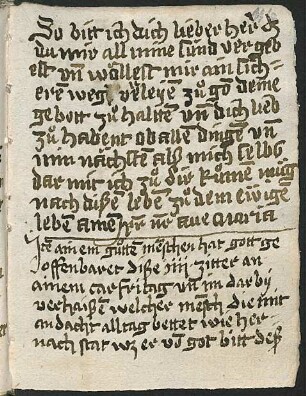 So bitt ich dich lieber herr dz
du mir all mine sünd vergeb
est vn̄ wöllest mir ain sich
eren weg verleyen zů gō deine
gebott zů halttē vn̄ dich lieb
zů habent ob allen dingē vn̄
min nächsten als mich selbs
dar mit ich zů dir kume müg
nach disē lebē zů dem ewigē
lebē amen pr nr aue maria
Itē ainem gůten menschen hat gott ge
offenbaret disse iiii zitter an
ainem carfritag vn̄ im dar by
verhaissen welcher mēsch die mit
andacht all tag bettet wie her
nach stat wz er vō got bitt des